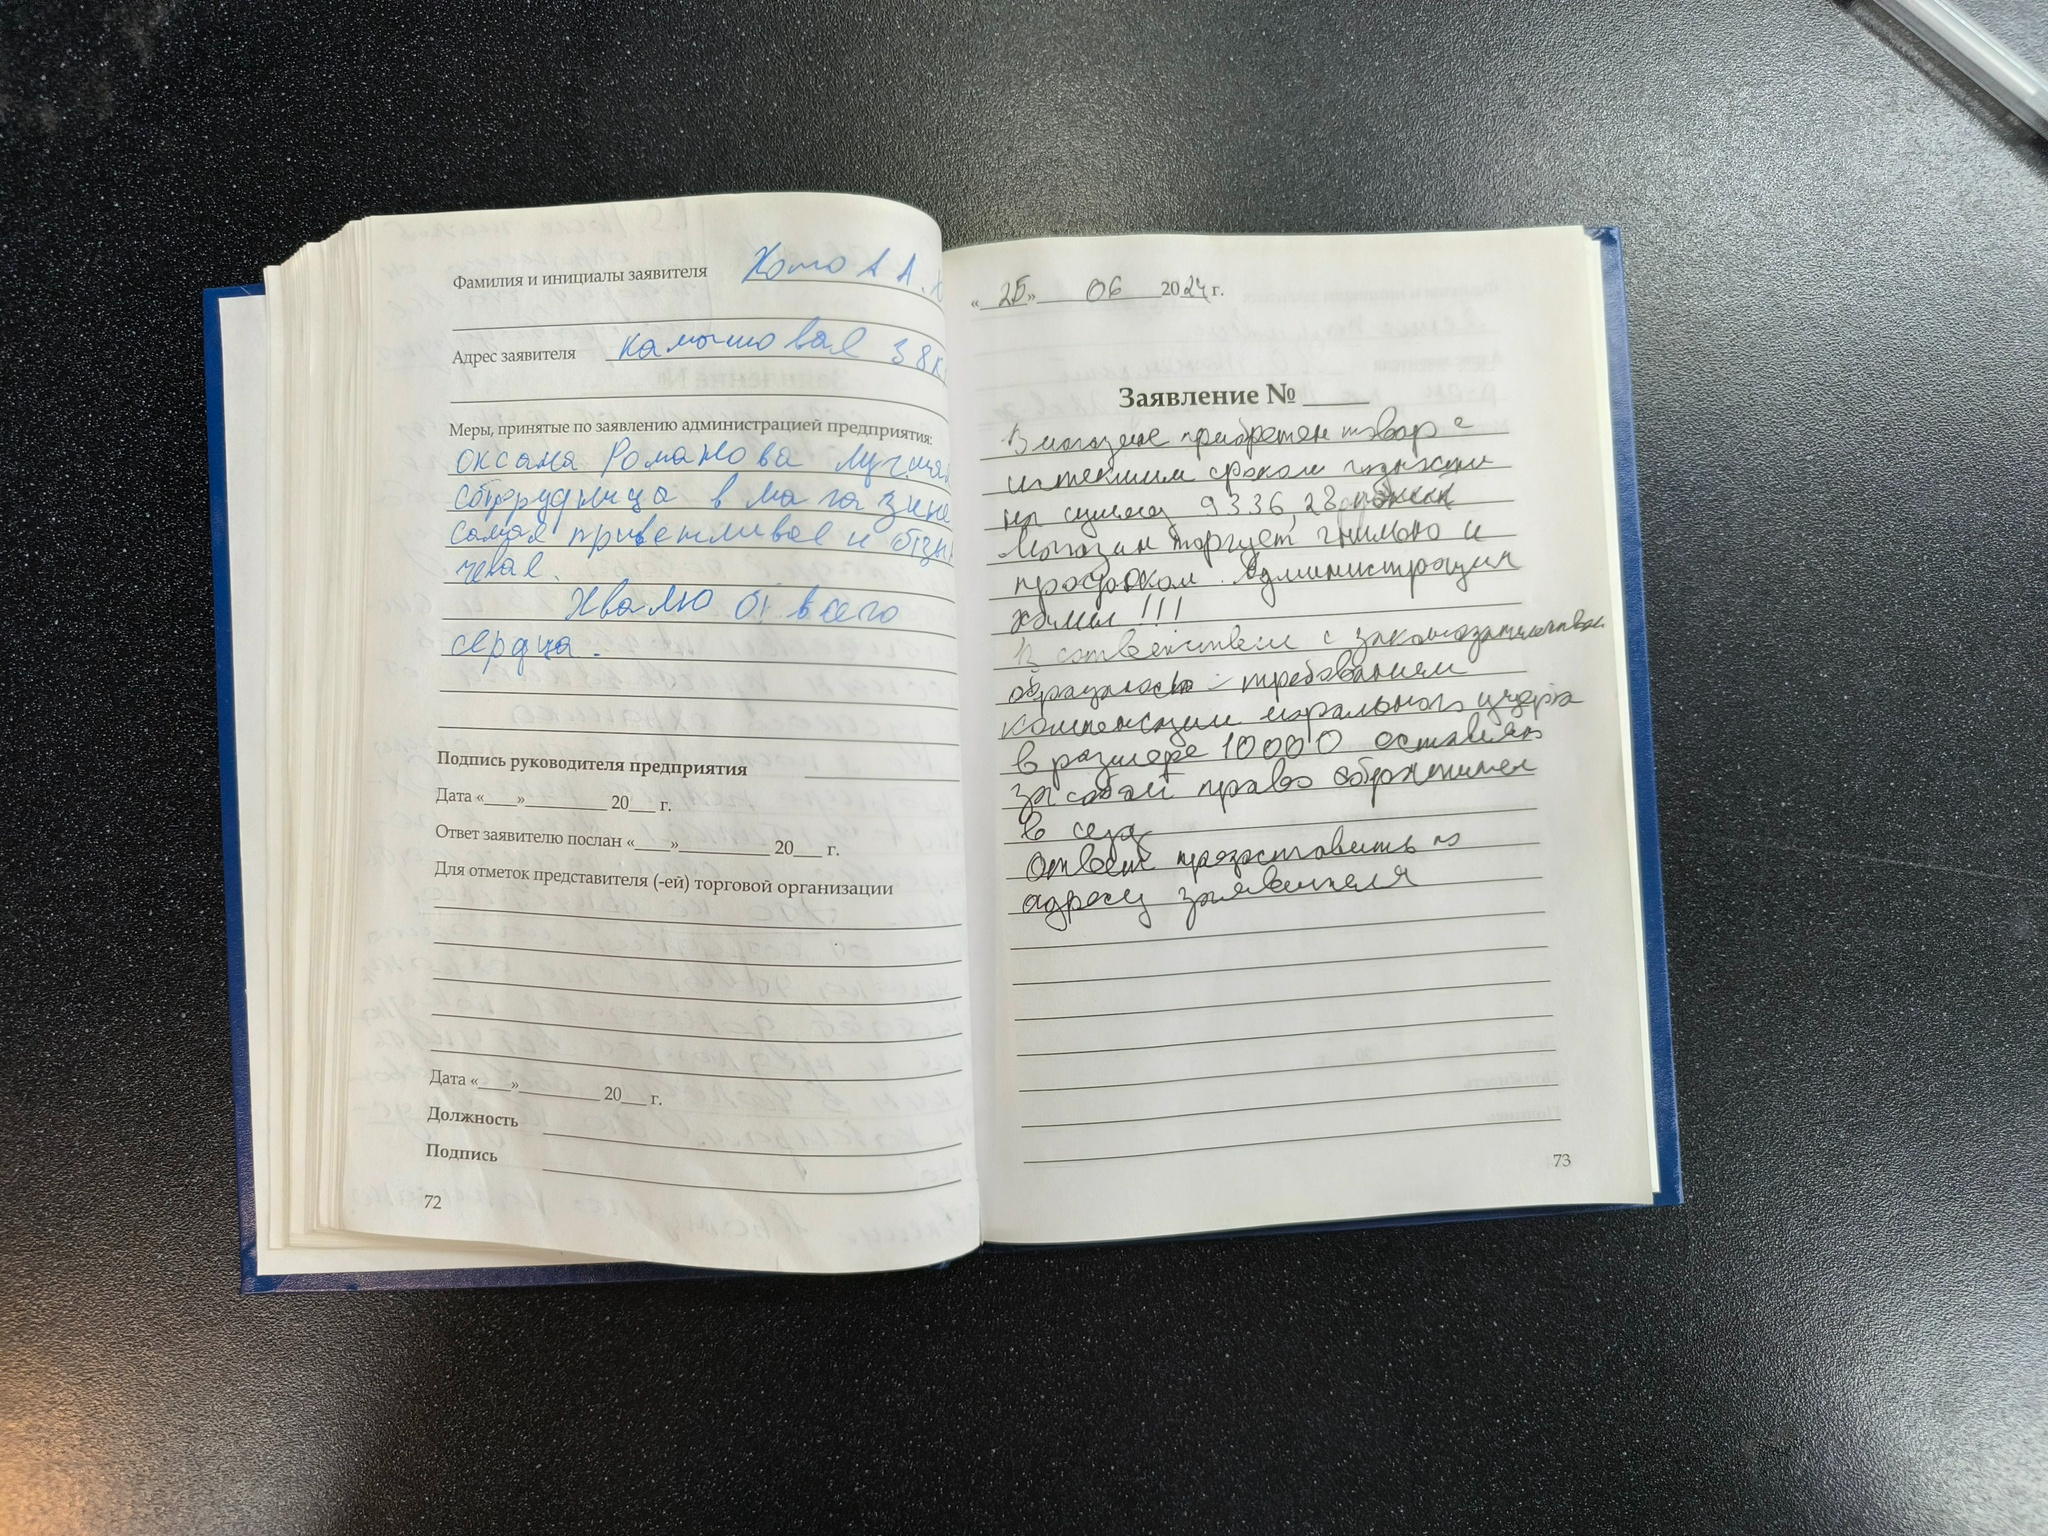 Фамилия и инициалы заявителя Хомо А А.
Адрес заявителя камышовая 38к
Меры, принятые по заявлению администрацией предприятия:
оксана Романова лучшая
сотрудница в магазине
самая приветливая и отзы
чевая.
Хвалю от всего
сердца.
Подпись руководителя предприятия
Дата «___»________ 20__ г.
Ответ заявителю послан «___»_________ 20__ г.
Для отметок представителя (-ей) торговой организации
Дата «___»________ 20__ г.
Должность
Подпись
72
«25» 06 2024 г.
Заявление № ____
В магазине приобретен товар с
истекшим сроком годности
на сумму 9336,28
Магазин торгует гнилью и
просроком. Администрация
хамы!!!
В соответствии с законодательством
обращаюсь с требованием
компенсации морального ущерба
в размере 10000 оставляю
за собой право обратится
в суд
Ответ предоставить по
адресу заявителя
73